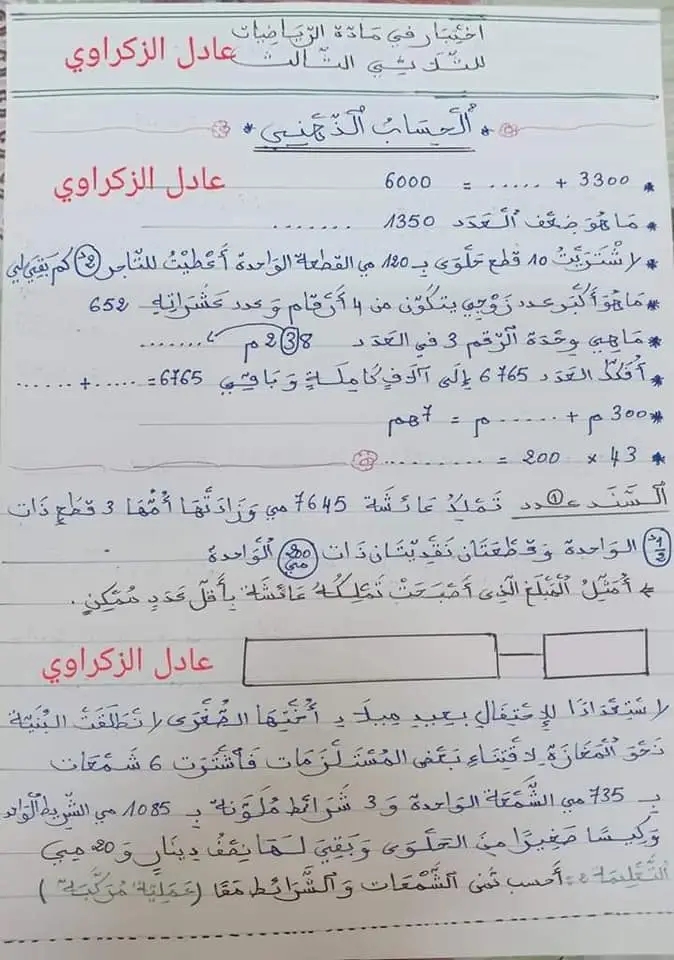 اختبار في مادّة الرّياضيات
للثلاثي الثالث
عادل الزكراوي
* الحساب الذّهني *
* 3300 + ..... = 6000
عادل الزكراوي
* ما هو ضعف العدد 1350 .......
* اشتريت 10 قطع حلوى بـ 120 مي القطعة الواحدة أعطيت للتاجر 2د كم بقي لي
* ما هو أكبر عدد زوجي يتكوّن من 4 أرقام و عدد عشراته 652
* ما هي وحدة الرّقم 3 في العدد 238 م .......
* أفكّك العدد 6765 إلى آلاف كاملة و باقي 6765 = ..... + ......
* 300 م + ...... م = 7 هم
* 43 × 200 = .........
السّند عدد 1 تملك عائشة 7645 مي و زادتها أمّها 3 قطع ذات
1/2 د الواحدة و قطعتان نقديتان ذات 200 مي الواحدة
أمثّل المبلغ الذي أصبحت تملكه عائشة بأقل عدد ممكن.
عادل الزكراوي
استعدادا للإحتفال بعيد ميلاد أختها الصّغرى انطلقت البنيّة
نحو المغازة لاقتناء بعض المستلزمات فاشترت 6 شمعات
بـ 735 مي الشّمعة الواحدة و 3 شرائط ملوّنة بـ 1085 مي الشريط الواحد
و كيسا صغيرا من الحلوى و بقي لها نصف دينار و 20 مي
التّعليمة : أحسب ثمن الشّمعات و الشّرائط معا (عمليّة مركّبة)